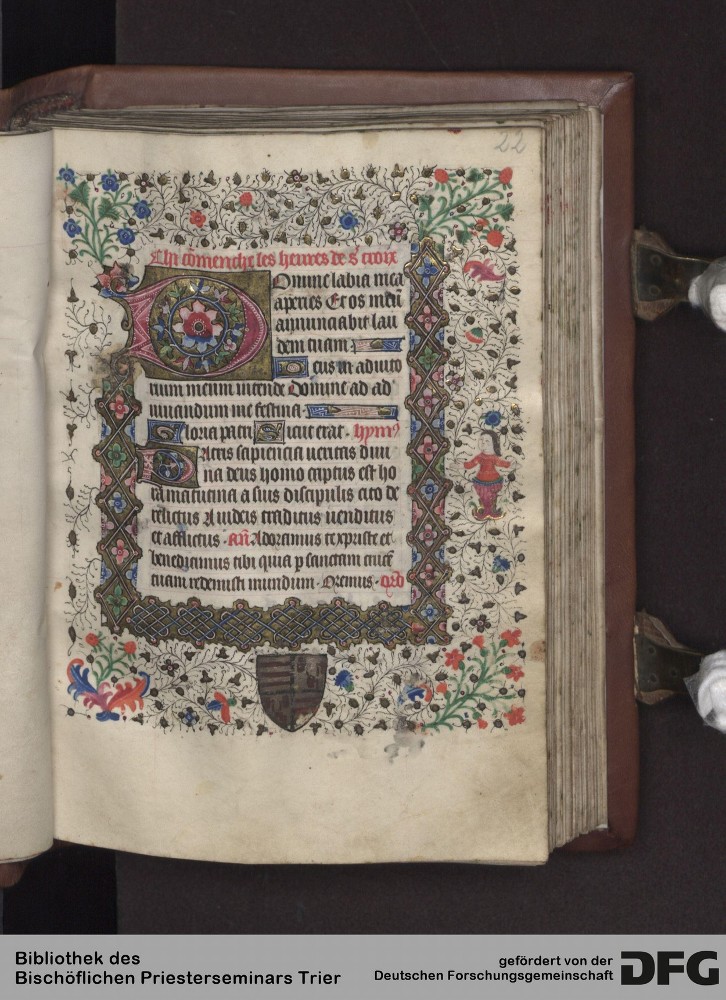 22
Chi cōmenche les heures de sͭ croix
Domine labia mea
aperies Et os meū
annunciabit lau
dem tuam
Deus in adiuto
rium meum intende Domine ad ad
iuuandum me festina
Gloria patri Sicut erat hymꝰ
Patris sapiencia ueritas diui
na deus homo captus est ho
ra matutina a suis discipulis cito de
relictus A iudeis traditus uenditus
et afflictus añ Adoramus te xp̄riste et
benedicamus tibi quia p sanctam crucē
tuam redemisti mundum Oremus orō
Bibliothek des
Bischöflichen Priesterseminars Trier
gefördert von der
Deutschen Forschungsgemeinschaft
DFG